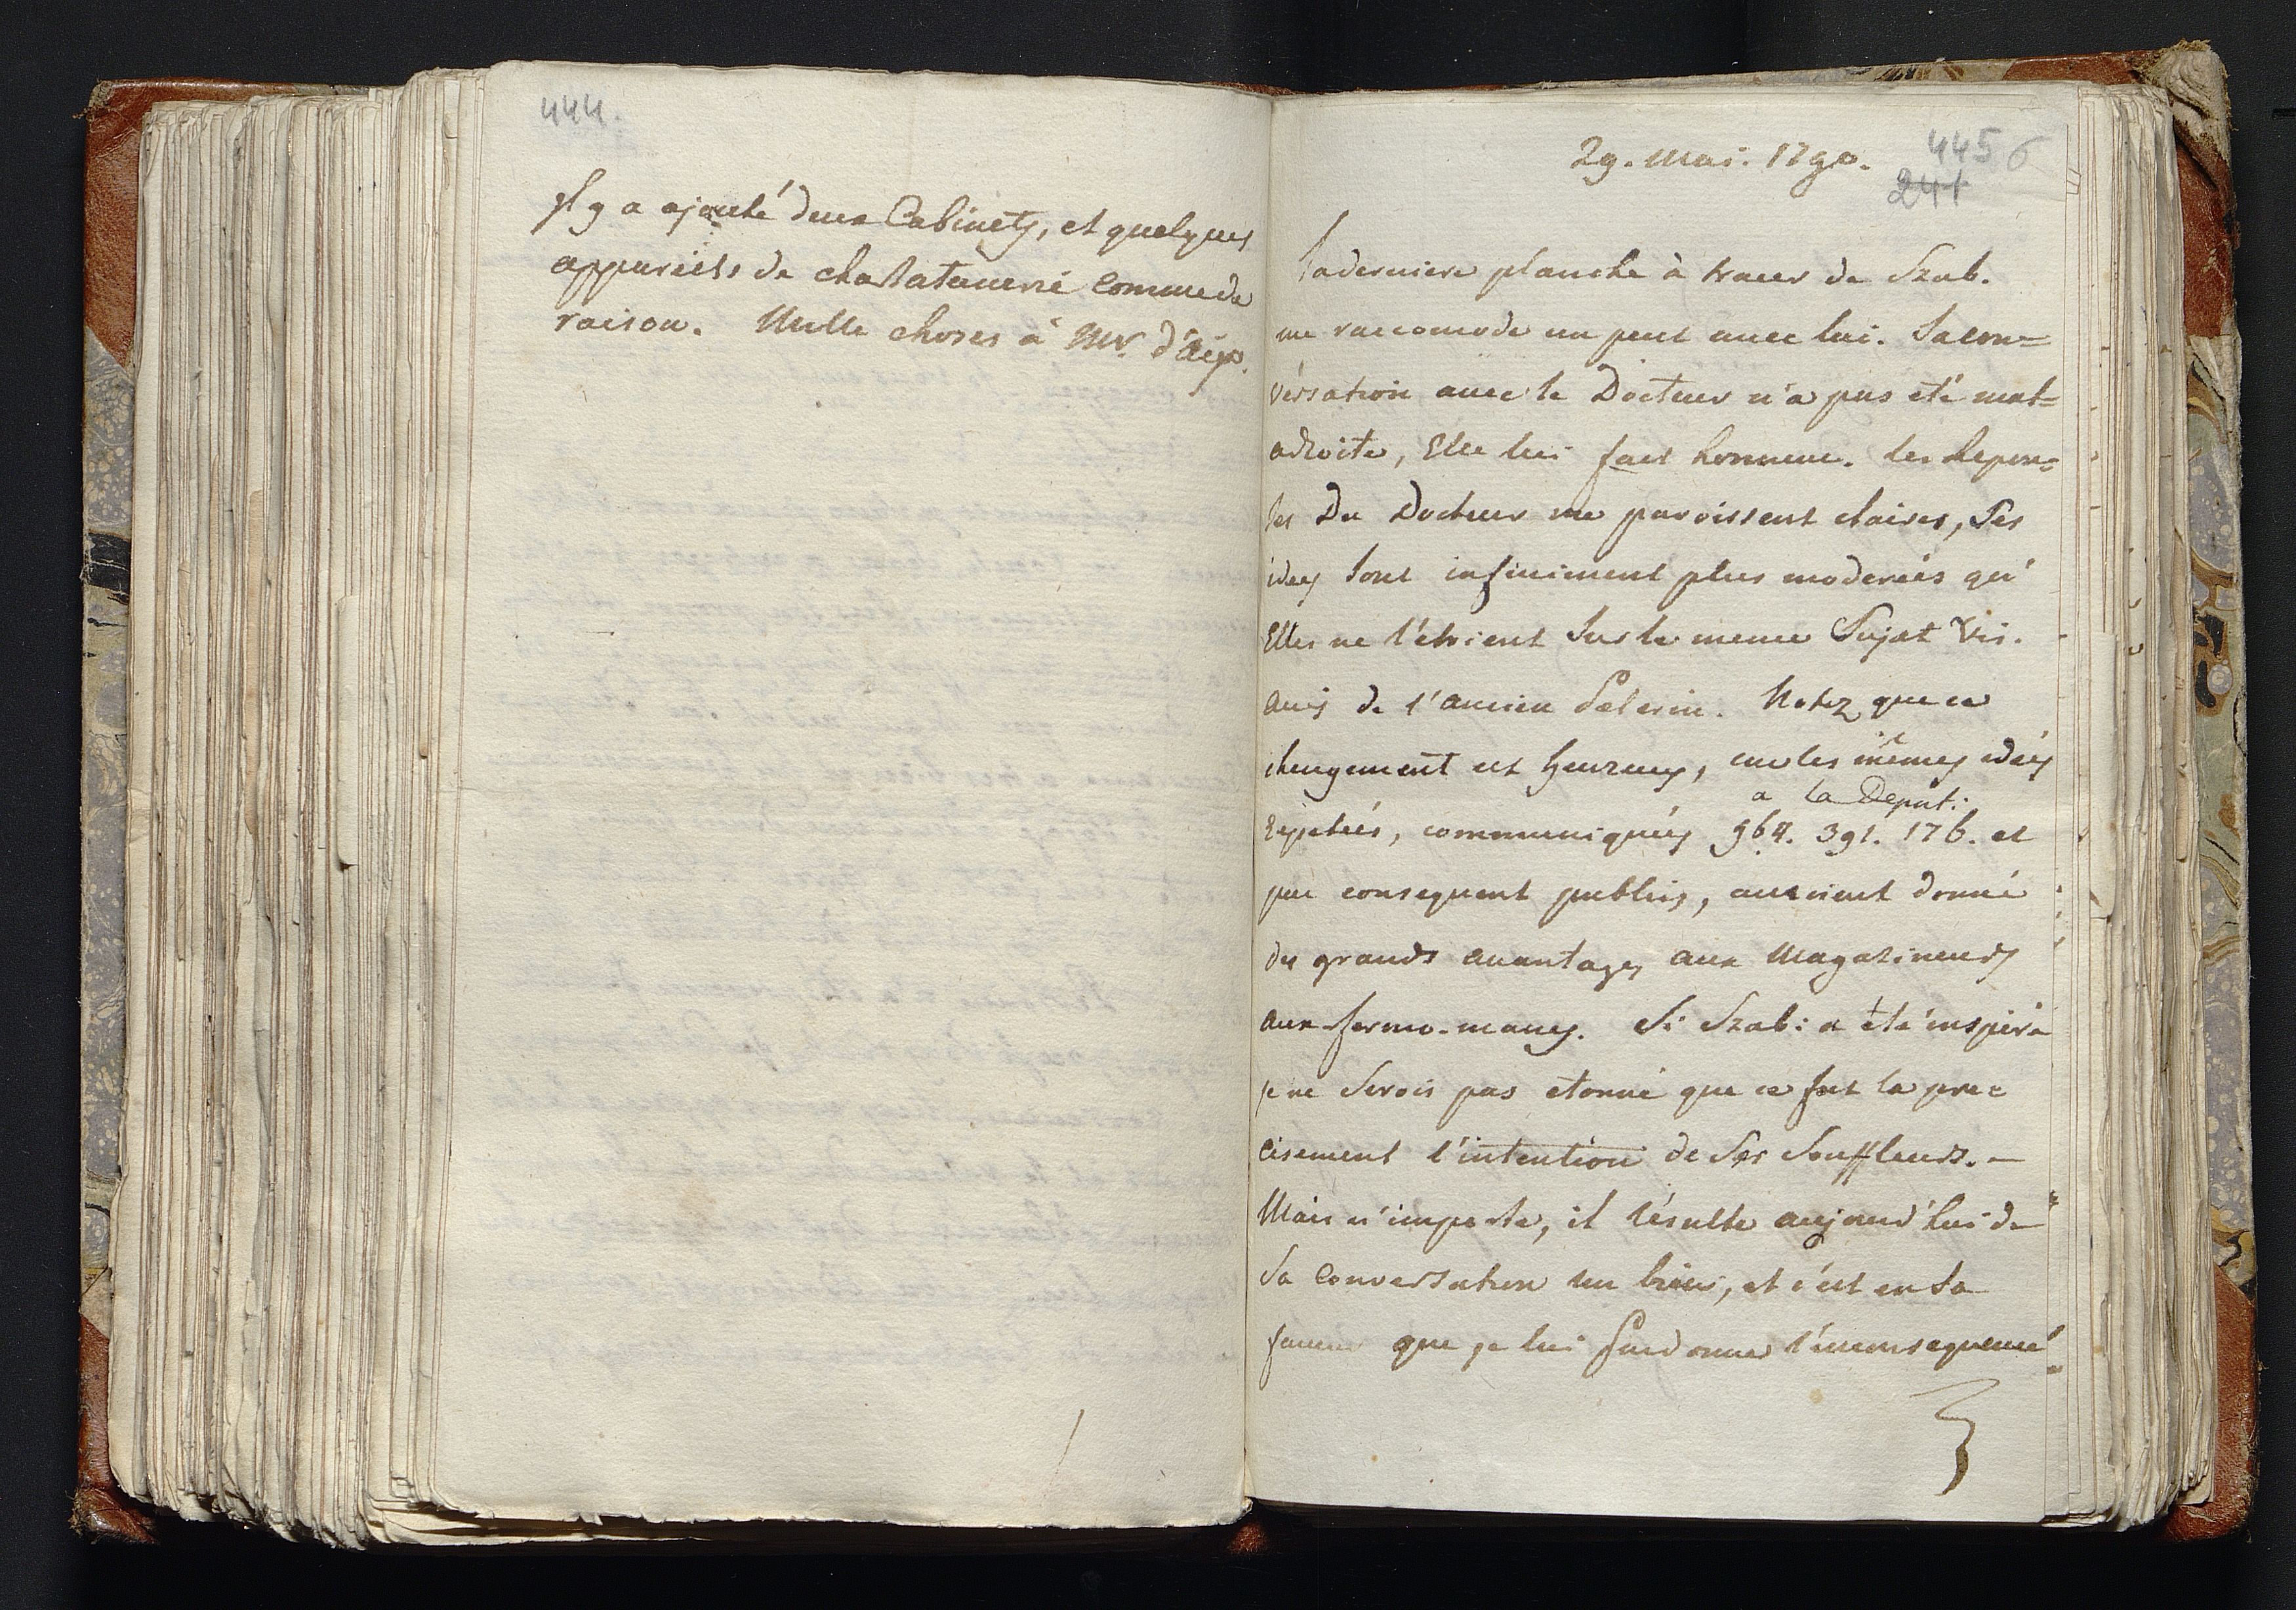 444.
Il y a ajouté deux Cabinets, et quelques
appareils de charlatanerie comme de
raison. Mille choses à Mr. d'Aig.
29. Mai. 1790.
445 6
241
la derniere planche à tracer de Szab.
me raccomode un peut avec lui. Sa con=
versation avec le Docteur n'a pas eté mal=
adroite, Elle lui fait honneur. les Repon=
ses Du Docteur me paroissent claires, Ses
idees sont infiniment plus moderées qu'
Elles ne l'étoient Sur le meme Sujet Vis.
avis de l'ancien Pelerin. Notez que ce
changement est heureux, car les mêmes idées
a la Deput:
Repetées, communiquées 964. 391. 176. et
par consequent publies, auroient donné
des grands avantages aux Magasineurs
aux fermo-manes. Si Szab: a été inspiré
je ne Serois pas etonné que ce fut la pre=
cisement l'intention de Ses Souffleurs. —
Mais n'importe, il résulte aujourd'hui de
Sa Conversation un bien, et c'est en Sa
faveur que je lui Pardonne l'inconsequence